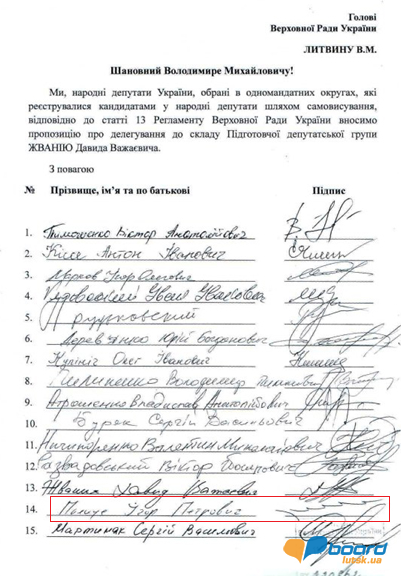 Голові
Верховної Ради України
ЛИТВИНУ В.М.
Шановний Володимире Михайловичу!
Ми, народні депутати України, обрані в одномандатних округах, які
реєструвалися кандидатами у народні депутати шляхом самовисування,
відповідно до статті 13 Регламенту Верховної Ради України вносимо
пропозицію про делегування до складу Підготовчої депутатської групи
ЖВАНІЮ Давида Важаєвича.
З повагою
№ Прізвище, ім’я та по батькові Підпис
1. Тимошенко Віктор Анатолійович
2. Кіссе Антон Іванович
3. Марков Ігор Олегович
4. Іван Іванович
5.
6. Юрій Богданович
7. Кулініч Олег Іванович
8. Володимир
9. Атрошенко Владислав Анатолійович
10. Бурек Сергій Васильович
11. Ничипоренко Валентин Миколайович
12. Развадовський Віктор Йосипович
13. Жванія Давид Важаєвич
14. Палиця Ігор Петрович
15. Мартиняк Сергій Васильович
board
lutsk.ua